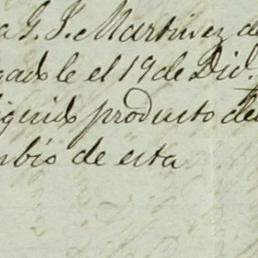 a G. I. Martinez de
gado le el 19 de Div.
liquid producto del
mbio de esta